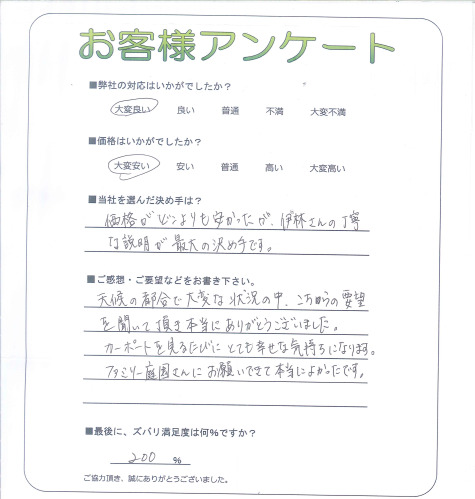 お客様アンケート
■弊社の対応はいかがでしたか？
大変良い 良い 普通 不満 大変不満
■価格はいかがでしたか？
大変安い 安い 普通 高い 大変高い
■当社を選んだ決め手は？
価格がどこよりも安かったが、伊林さんの丁寧
な説明が最大の決め手です。
■ご感想・ご要望などをお書き下さい。
天候の都合で大変な状況の中、こちらの要望
を聞いて頂き本当にありがとうございました。
カーポートを見るたびにとても幸せな気持ちになります。
ファミリー庭園さんにお願いできて本当によかったです。
■最後に、ズバリ満足度は何％ですか？
200 ％
ご協力頂き、誠にありがとうございました。